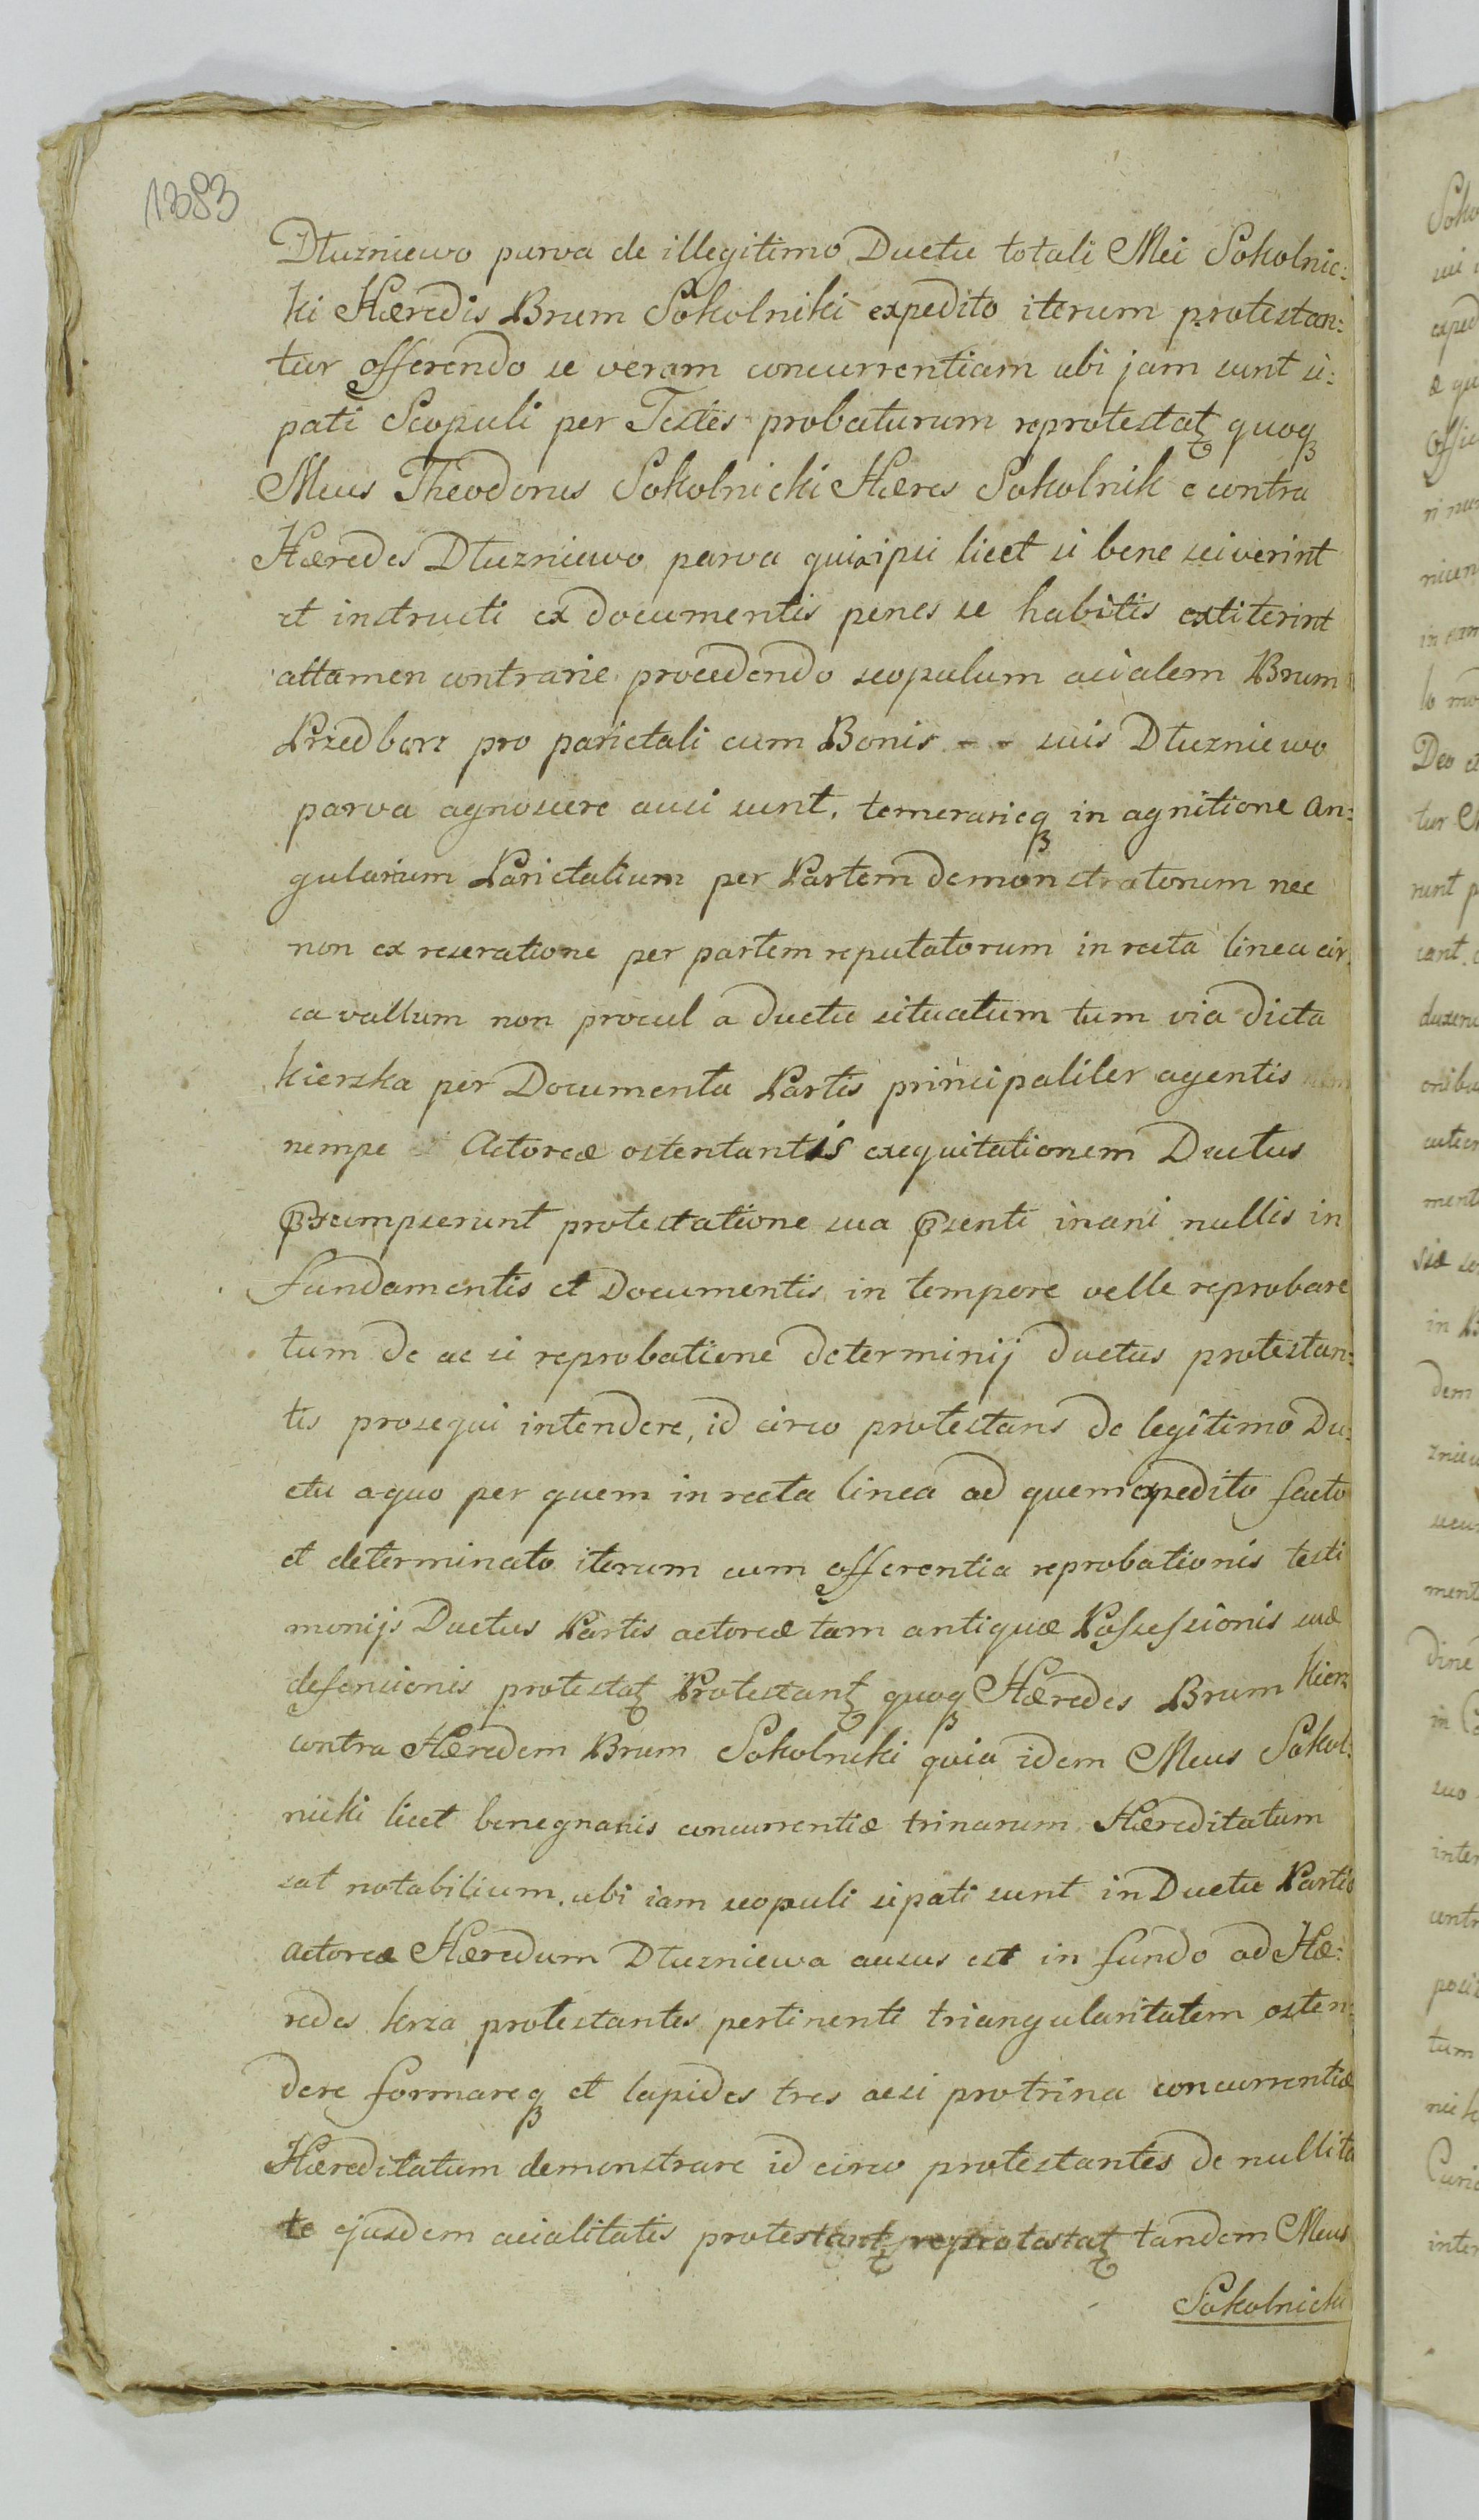 1383
Dłuzniewo parva de illegitimo Ductu totali Mei Sokolnic:
ki Hæredis Brum Sokolniki expedito iterum protestan:
tur offerendo se veram concurrentiam ubi jam sunt si:
pati Scopuli per Testes probaturum reprotestatꝫ quoqꝫ
Meus Theodorus Sokolnicki Hæres Sokolnik e contra
Hæredes Dłuzniewo parva quia ipsi licet si bene sciverint
et instructi ex documentis penes se habitis extiterint
attamen contrarie procedendo scopulum acialem Brum
Przedborz pro parietali cum Bonis - - suis Dłuzniewo
parva agnoscere ausi sunt, temerarieqꝫ in agnitione an:
gularium Parietalium per Partem demonstratorum nec
non ex reseratione per partem reputatorum in recta linea cir
ca vallum non procul a ductu situatum tum via dicta
kierzka per Documenta Partis principaliter agentis
nempe Actoreæ ostentantis exequitationem Ductus
Pꝛsumpserunt protestatione sua pꝛsenti inani nullis in
fundamentis et Documentis in tempore velle reprobare
tum de ac si reprobatione determinij ductus protestan:
tis prosequi intendere, id circo protestans de legitimo Du:
ctu a quo per quem in recta linea ad quem expedito facto
et determinato iterum cum offerentia reprobationis testi
monijs Ductus Partis actoreæ tam antiquæ Possessionis suæ
defensionis protestatꝫ Protestantꝫ quoqꝫ Hæredes Brum kierz
contra Hæredem Brum Sokolnicki quia idem Meus Sokol:
nicki licet benegnaris concurrentiæ trinarum Hæreditatum
sat notabilium, ubi iam scopuli sipati sunt in Ductu Partis
Actoreæ Hæredum Dłuzniewa ausus est in fundo ad Hæ:
redes kerza protestantes pertinenti triangularitatem osten:
dere formareqꝫ et lapides tres acsi pro trina concurrentiæ
Hæreditatum demonstrare id circo protestantes de nullita
te ejusdem acialitatis protestantꝫ reprotestatꝫ tandem Meus
Sokolnicki